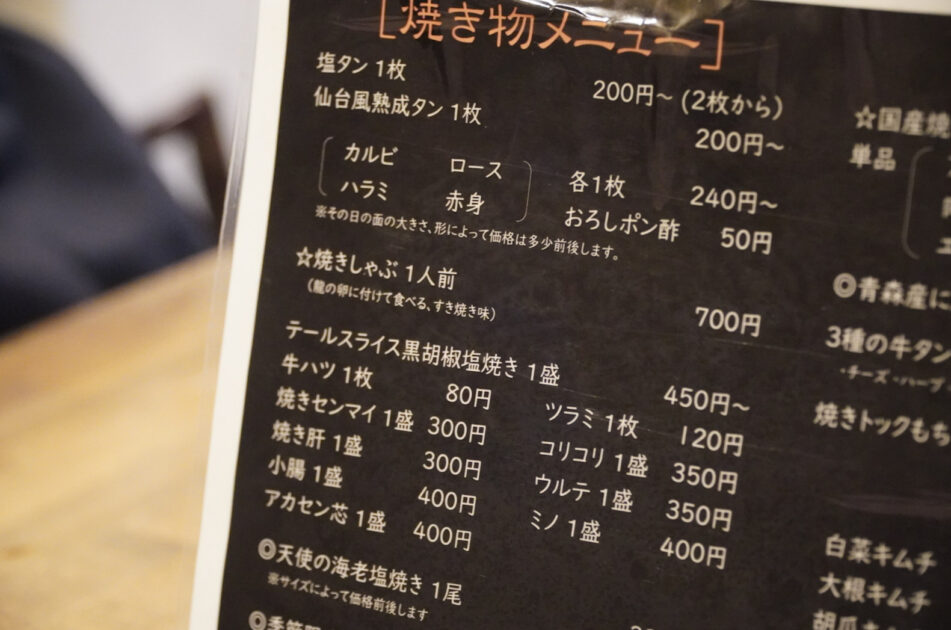 [焼き物メニュー]
塩タン 1枚 200円～ (2枚から)
仙台風熟成タン 1枚 200円～
カルビ ロース
ハラミ 赤身
各1枚 240円～
おろしポン酢 50円
※その日の面の大きさ、形によって価格は多少前後します。
☆焼きしゃぶ 1人前 700円
(龍の卵に付けて食べる、すき焼き味)
テールスライス黒胡椒塩焼き 1盛 450円～
牛ハツ 1枚 80円
ツラミ 1枚 120円
焼きセンマイ 1盛 300円
コリコリ 1盛 350円
焼き肝 1盛 300円
ウルテ 1盛 350円
小腸 1盛 400円
ミノ 1盛 400円
アカセン芯 1盛 400円
◎天使の海老塩焼き 1尾
※サイズによって価格前後します
☆国産
単品
◎青森産に
3種の牛タン
・チーズ・ハーブ
焼きトックもち
白菜キムチ
大根キムチ
胡瓜キ